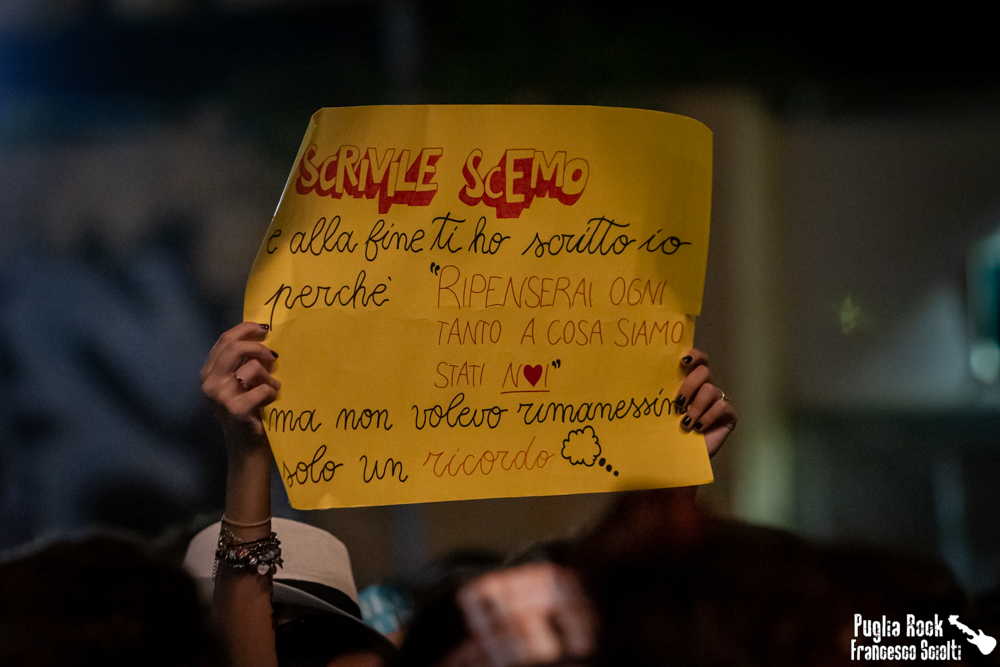 SCRIVILE SCEMO
e alla fine ti ho scritto io
perchè "RIPENSERAI OGNI
TANTO A COSA SIAMO
STATI NOI"
ma non volevo rimanessim
solo un ricordo
Puglia Rock
Francesco Sciolti